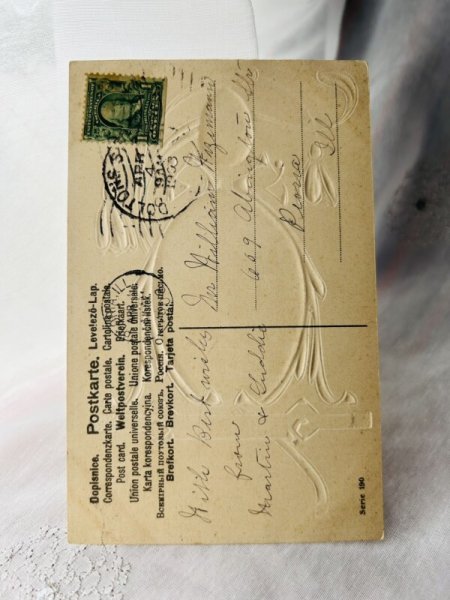 Dopisnice. Postkarte. Levelező-Lap.
Correspondenzkarte. Carte postale. Cartolina postale.
Post card. Weltpostverein. Briefkaart.
Union postale universelle. Unione postale universale.
Karta korespondencyjna. Korespondenční lístek.
Всемірный почтовый союзъ. Россія. Открытое письмо.
Brefkort. Brevkort. Tarjeta postal.
APR
4
9 AM
With Best wishes
from
Martin &
William
609 Abington Str
Peoria
Ill
Serie 190